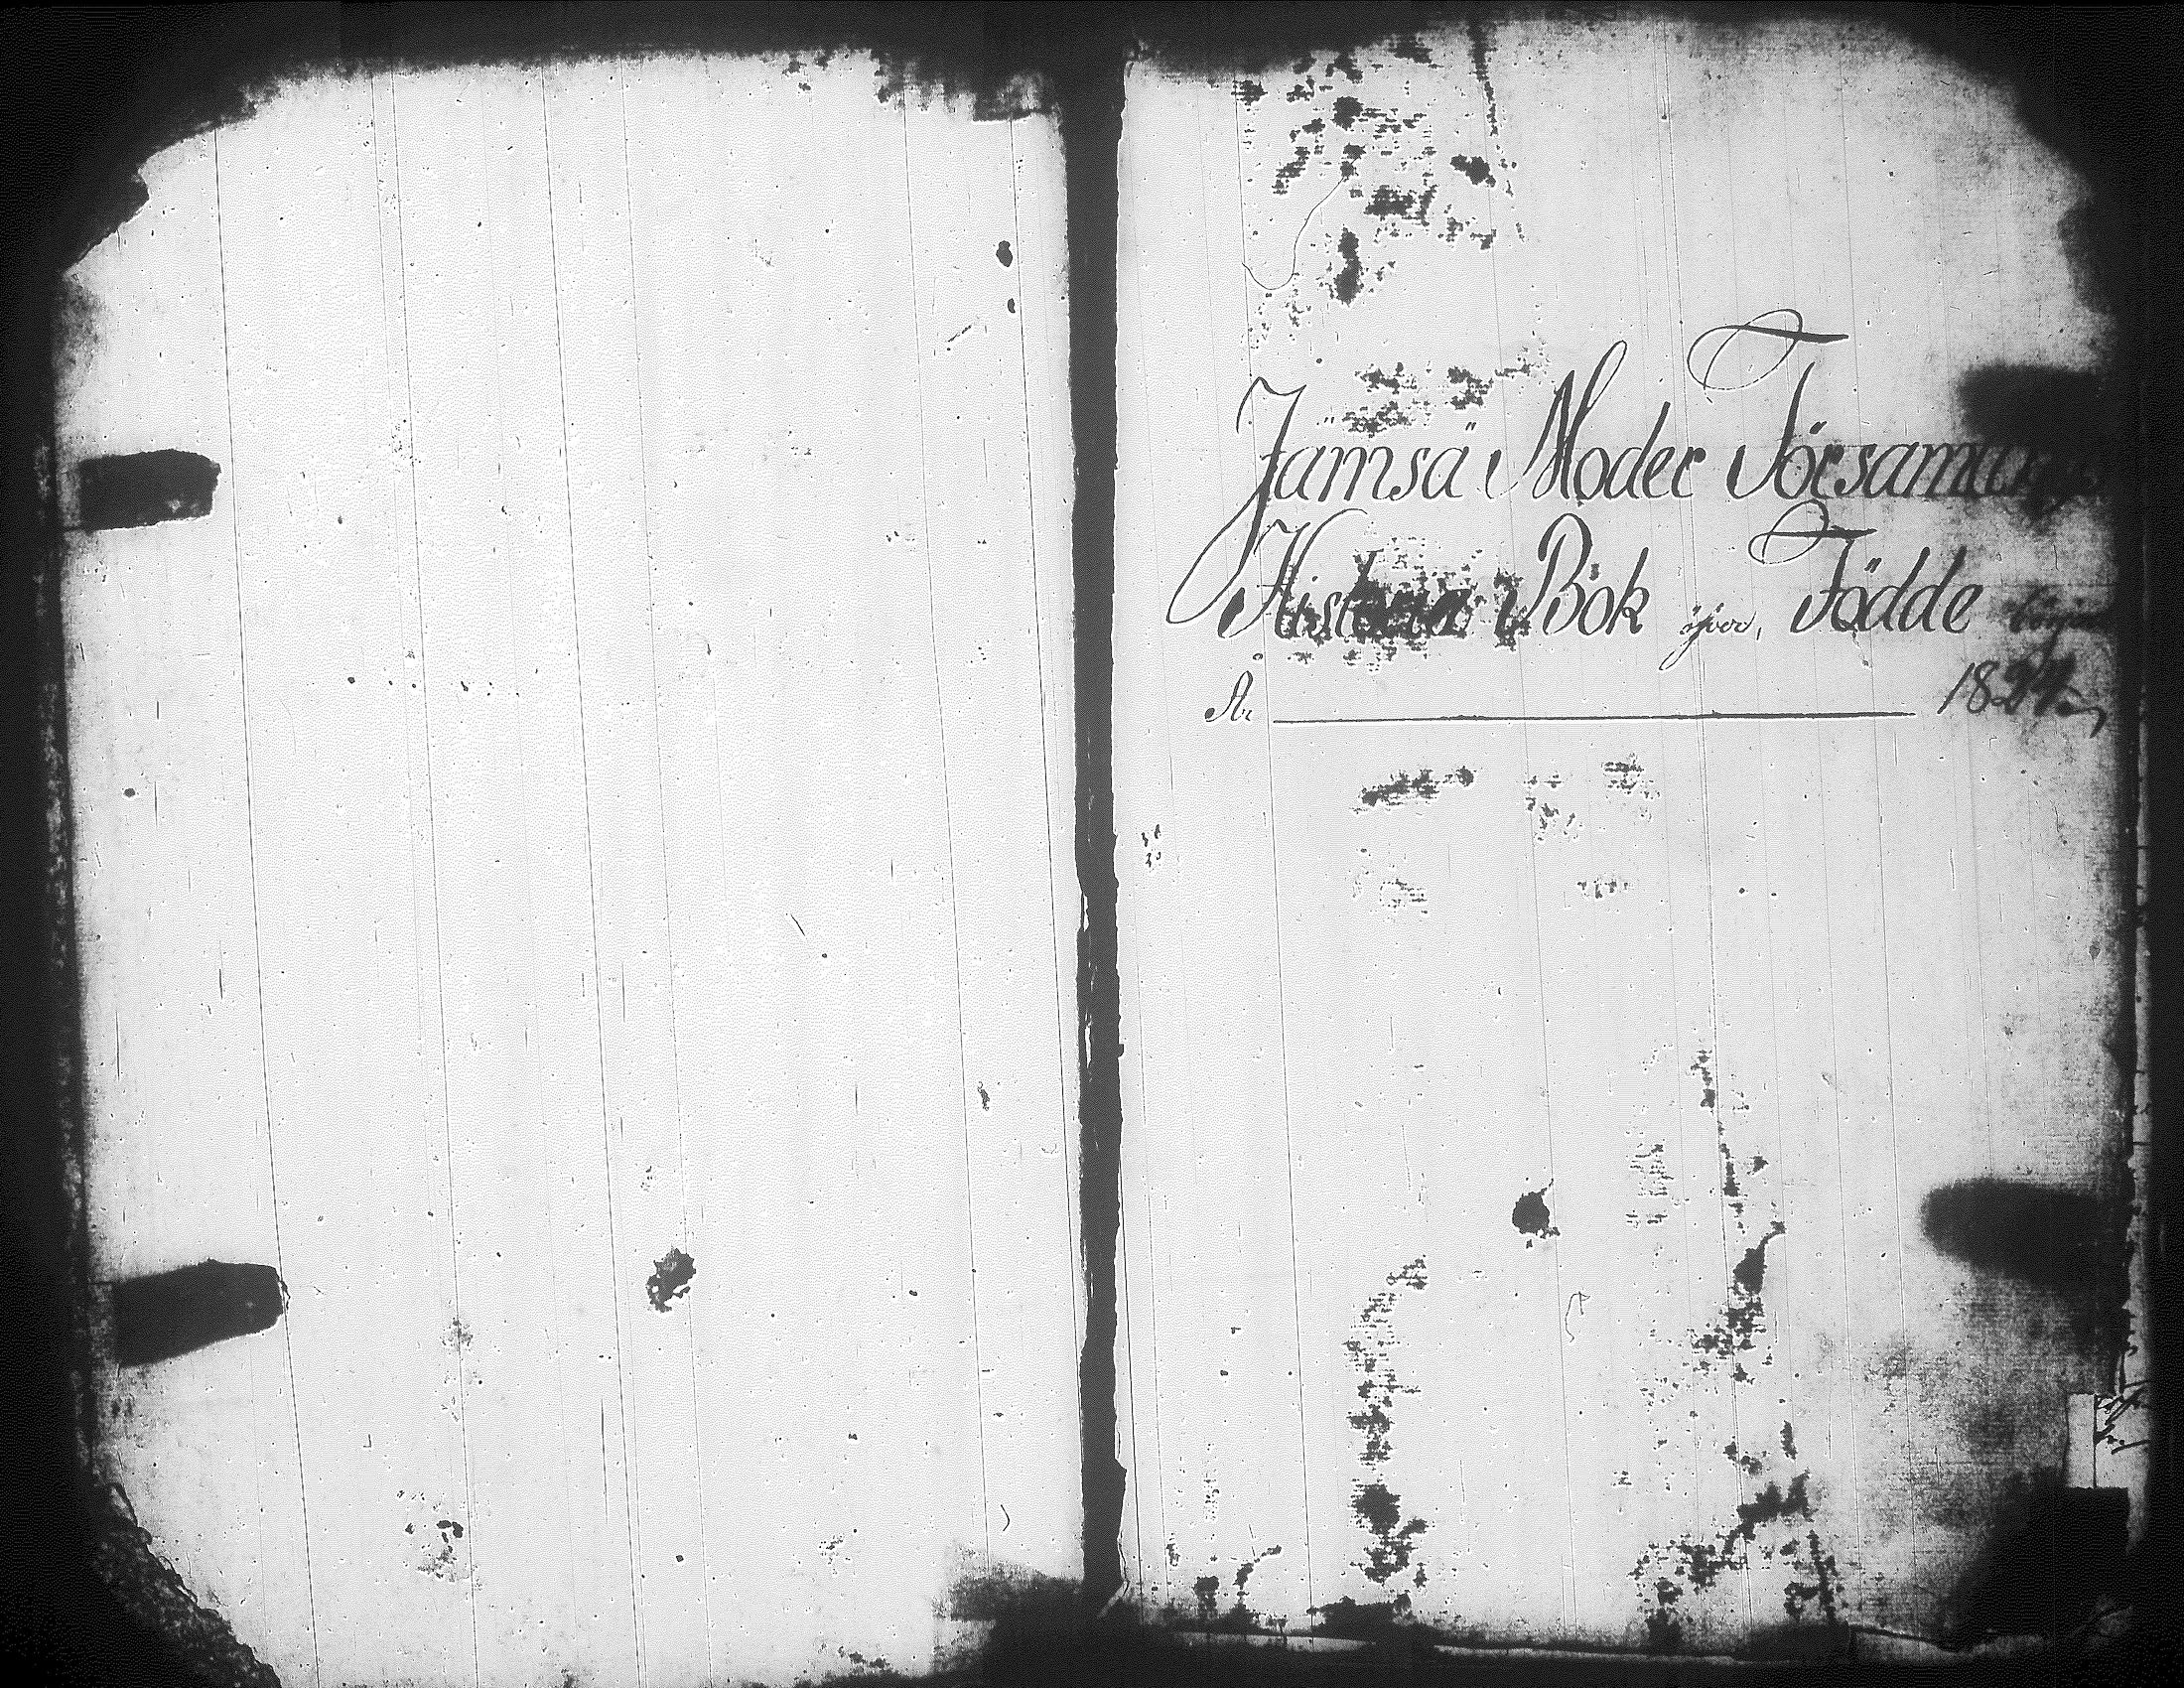 Jämsä Moder Församling
Historia Bok öfver, Födde
År 1824